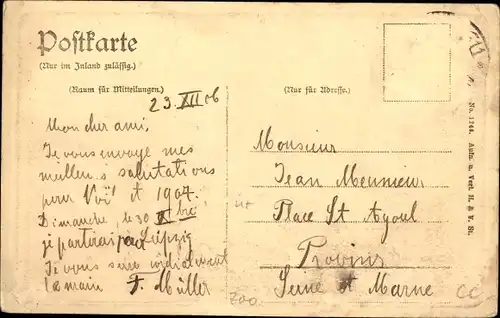 Postkarte
(Nur im Inland zulässig.)
(Raum für Mitteilungen.)
(Nur für Adresse.)
23 XII 06
Mon cher ami,
Je vous envoye mes
meilleurs salutations
pour Noël et 1907.
Dimanche, le 30 Xbre
je partirai pour Leipzig
Je vous serre cordialement
la main F. Müller
Monsieur
Jean Meunieur
Place St Ayoul
Provins
Seine et Marne
No. 1744. Aufn. u. Verl. H. & V. St.
Zoo
CC